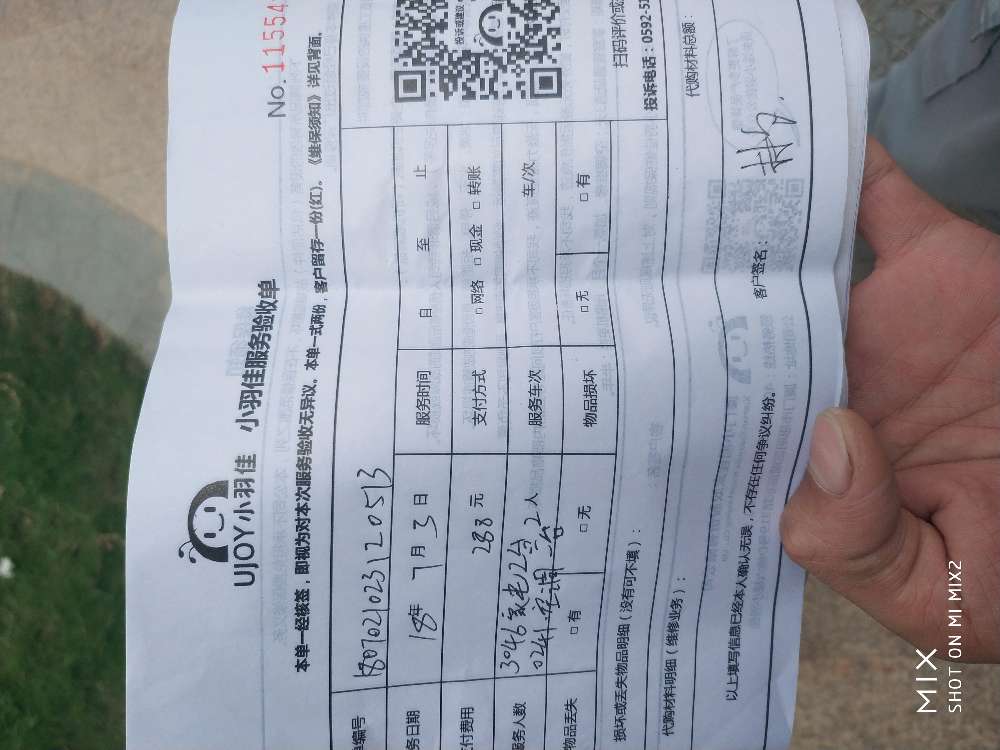 No. 11554
UJOY小羽佳 小羽佳服务验收单
本单一经核签，即视为对本次服务验收无异议。本单一式两份，客户留存一份(红)。《维保须知》详见背面。
编号 1807021023120513
务日期 18年 7月 3日 服务时间 自 至 止
付费用 288元 支付方式 □网络 □现金 □转账
服务人数 2人 服务车次 车/次
物品丢失 □有 □无 物品损坏 □无 □有
损坏或丢失物品明细（没有可不填）：
投诉或建议
扫码评价或
投诉电话：0592-52
代购材料明细（维修业务）：
代购材料总额：
以上填写信息已经本人确认无误，不存在任何争议纠纷。
客户签名：
MIX
SHOT ON MI MIX2